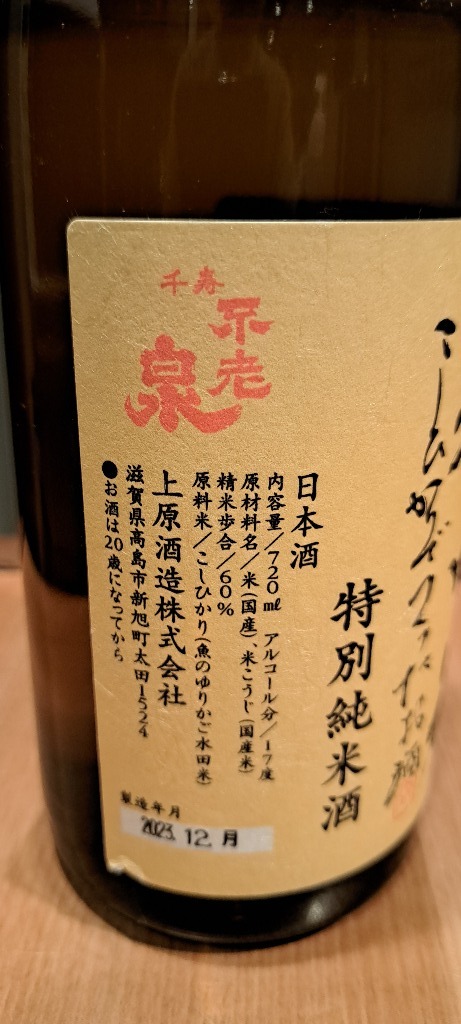 こしひかりでつくったお酒
特別純米酒
日本酒
内容量/720㎖ アルコール分/17度
原材料名/米(国産)、米こうじ(国産米)
精米歩合/60%
原料米/こしひかり(魚のゆりかご水田米)
上原酒造株式会社
滋賀県高島市新旭町太田1524
●お酒は20歳になってから
千寿
不老
泉
製造年月
2023.12.月